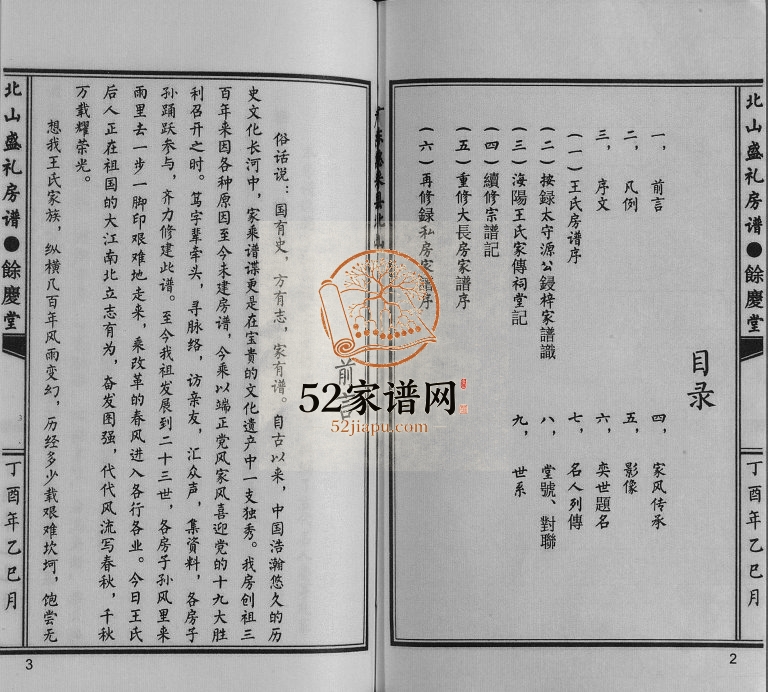 北山盛礼房谱●餘慶堂
丁酉年乙巳月
目录
一，前言
二，凡例
三，序文
（一）王氏房谱序
（二）按録太守源公鋟梓家譜識
（三）海陽王氏家傳祠堂記
（四）續修宗譜記
（五）重修大長房家譜序
（六）再修録私房家譜序
四，家风传承
五，影像
六，奕世題名
七，名人列傳
八，堂號、對聯
九，世系
2
52家谱网
52jiapu.com
前言
俗话说：国有史，方有志，家有谱。自古以来，中国浩瀚悠久的历
史文化长河中，家乘谱谍更是在宝贵的文化遗产中一支独秀。我房创祖三
百年来因各种原因至今未建房谱，今乘以端正党风家风喜迎党的十九大胜
利召开之时。笃字辈牵头，寻脉络，访亲友，汇众声，集资料，各房子
孙踊跃参与，齐力修建此谱。至今我祖发展到二十三世，各房子孙风里来
雨里去一步一脚印艰难地走来，乘改革的春风进入各行各业。今日王氏
后人正在祖国的大江南北立志有为，奋发图强，代代风流写春秋，千秋
万载耀荣光。
想我王氏家族，纵横几百年风雨变幻，历经多少载艰难坎坷，饱尝无
北山盛礼房谱●餘慶堂
丁酉年乙巳月
3